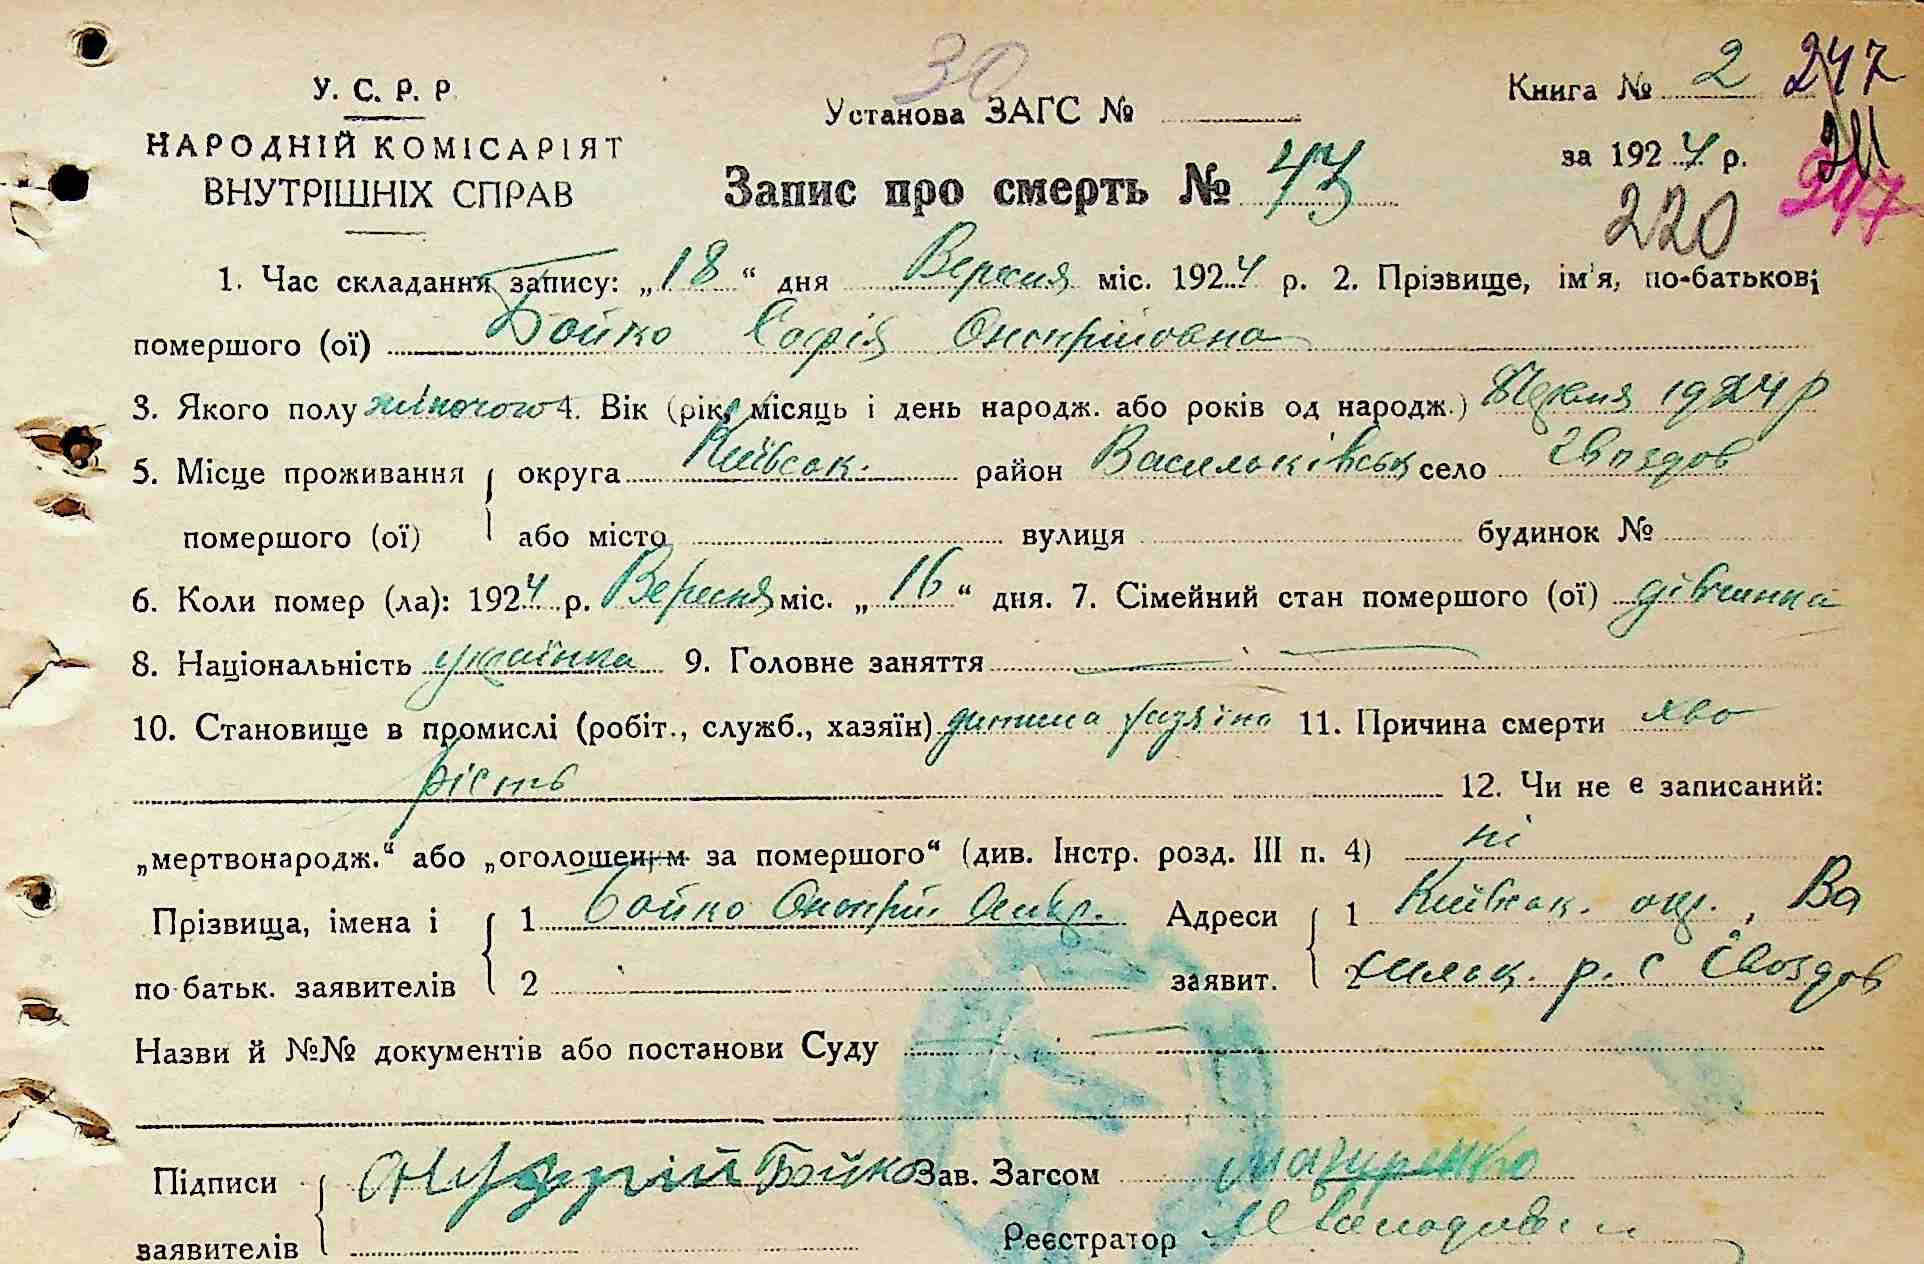 30
У. С. Р. Р
НАРОДНІЙ КОМІСАРІЯТ
ВНУТРІШНІХ СПРАВ
Установа ЗАГС №
Запис про смерть № 43
Книга № 2 247
за 1924 р.
247
220
1. Час складання запису: „18“ дня Вересня міс. 1924 р. 2. Прізвище, ім'я, по-батькові
помершого (ої) Бойко Софія Онопрійовна
3. Якого полу жіночого 4. Вік (рік, місяць і день народж. або років од народж.) 1924 р
5. Місце проживання округа Київськ. район Васильківськ село Гвоздов
помершого (ої) або місто вулиця будинок №
6. Коли помер (ла): 1924 р. Вересня міс. „16“ дня. 7. Сімейний стан помершого (ої) дівчинка
8. Національність українка 9. Головне заняття
10. Становище в промислі (робіт., служб., хазяїн) дитина хазяїна 11. Причина смерти
12. Чи не є записаний:
„мертвонародж.“ або „оголошеним за помершого“ (див. Інстр. розд. III п. 4) ні
Прізвища, імена і 1 Бойко Онопрій Адреси 1 Київськ. окр., Ва
по-батьк. заявителів 2 заявит. 2 сильк. р. с Гвоздов
Назви й №№ документів або постанови Суду
Підписи Бойко Зав. Загсом Мазуренко
заявителів Реєстратор